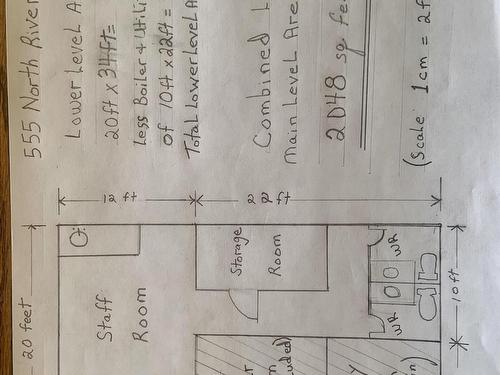 555 North River
Lower Level A
20ft x 34ft =
Less Boiler & Utili
of 10ft x 22ft =
Total Lower Level A
Combined L
Main Level Are
2048 sq fe
(Scale: 1cm = 2f
12 ft
22 ft
20 feet
Staff
Room
Storage
Room
WR
WR
10ft
uded)